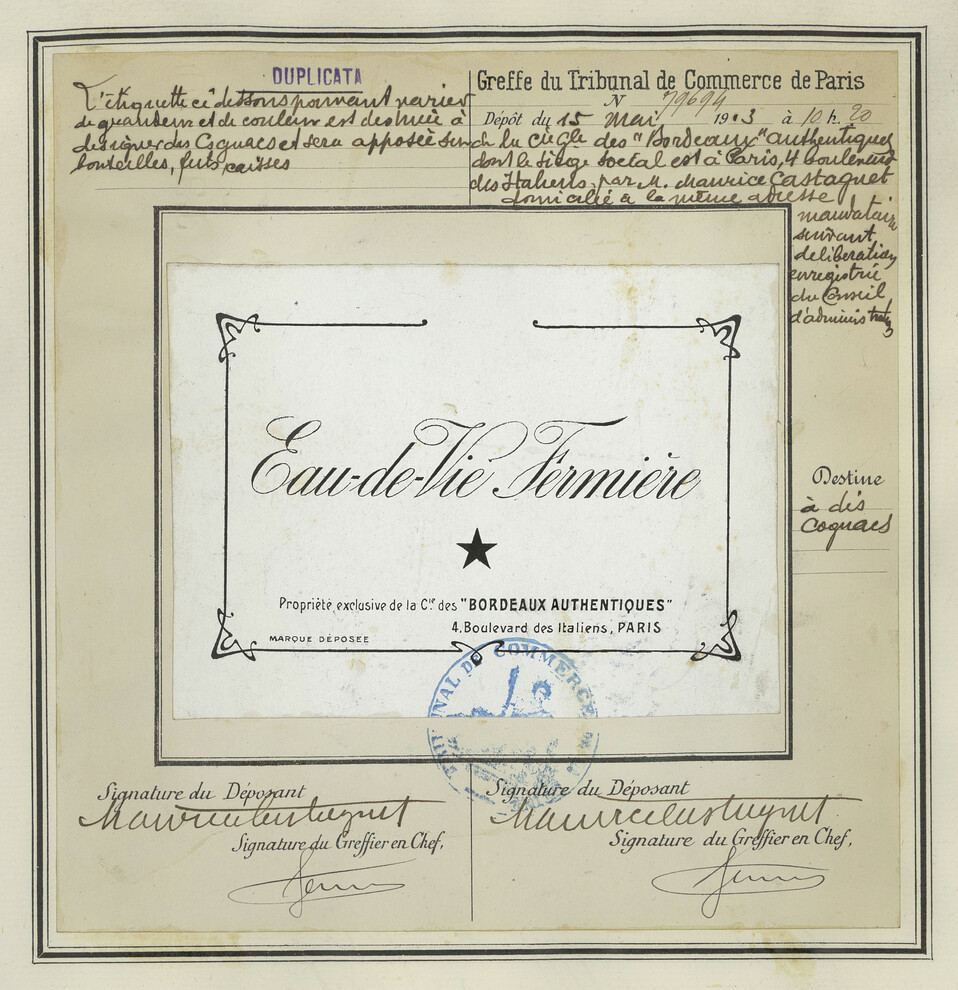 DUPLICATA
L'étiquette ci dessous pouvant varier
de grandeur et de couleur est destinée à
désigner des Cognacs et sera apposée sur
bouteilles, futs caisses
Greffe du Tribunal de Commerce de Paris
N 79694
Dépôt du 15 Mai 1913 à 10 h. 20
de la Cie Gle des "Bordeaux" authentiques
dont le siège social est à Paris, 4 boulevard
des Italiens, par M. Maurice Castagnet
domicilié à la même adresse
mandataire
suivant
délibération
enregistrée
du Conseil
d'administration
Eau-de-Vie Fermière
Propriété exclusive de la Cie des "BORDEAUX AUTHENTIQUES"
4, Boulevard des Italiens, PARIS
MARQUE DÉPOSÉE
Destine
à dis
Cognacs
TRIBUNAL DE COMMERCE
Signature du Déposant
Maurice Castagnet
Signature du Greffier en Chef,
Signature du Déposant
Maurice Castagnet
Signature du Greffier en Chef,